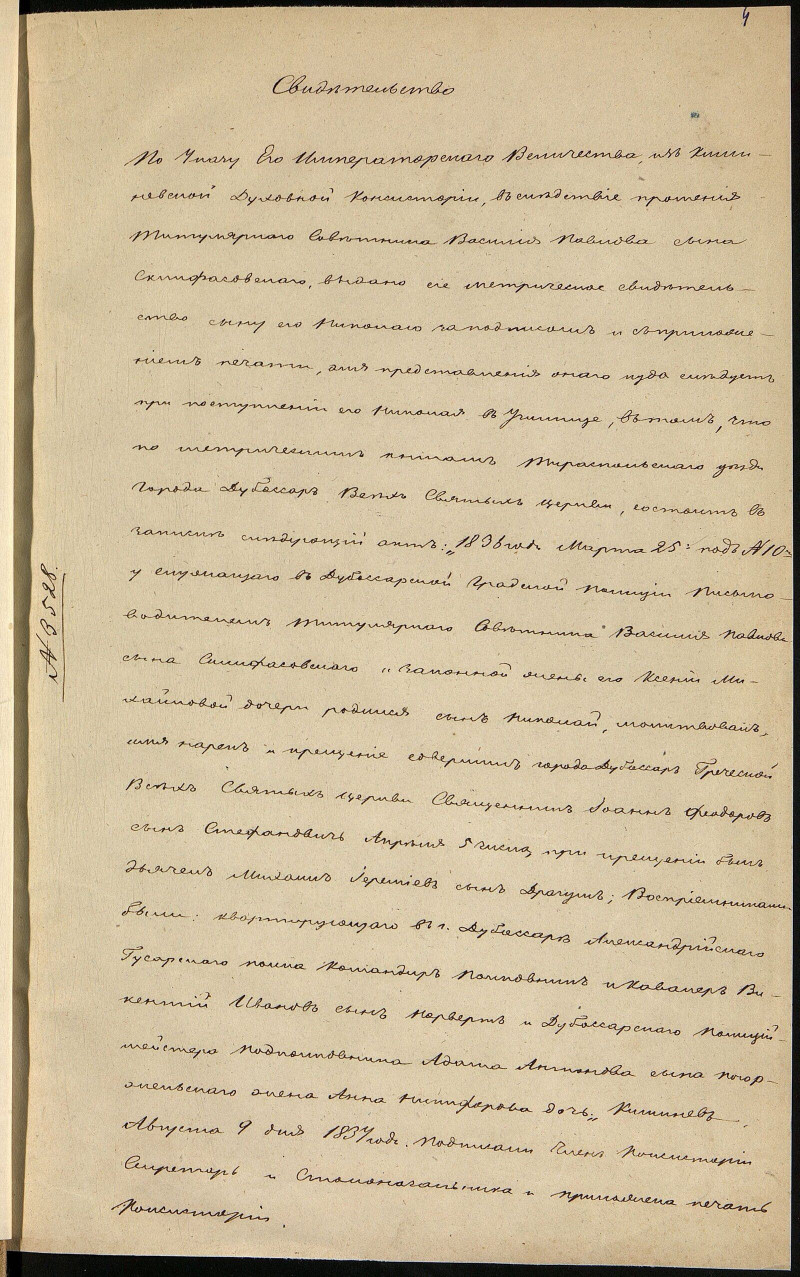 4
Свидѣтельство
По Указу Его Императорскаго Величества, изъ Киши-
невской Духовной Консисторіи, въ слѣдствіе прошенія
Титулярнаго Совѣтника Василія Павлова сына
Склифасовскаго, выдано сіе метрическое свидѣтель-
ство сыну его Николаю за подписомъ и съ приложе-
ніемъ печати, для представленія онаго куда слѣдуетъ
при поступленіи его Николая въ Училище, въ томъ, что
по метрическимъ книгамъ Тираспольскаго уѣзда
города Дубоссаръ Всѣхъ Святыхъ церкви, состоитъ въ
записи слѣдующій актъ: „1836 года Марта 25: подъ № 10
у служащаго въ Дубоссарской Градской Полиціи Письмо-
водителемъ Титулярнаго Совѣтника Василія Павлова
сына Склифасовскаго и законной жены его Ксеніи Ми-
хайловой дочери родился сынъ Николай, молитвовалъ,
имя нарекъ и крещеніе совершилъ города Дубоссаръ Греческой
Всѣхъ Святыхъ церкви Священникъ Іоаннъ Феодоровъ
сынъ Стефановичъ Апрѣля 5 числа, при крещеніи былъ
дьячекъ Михаилъ Іереміевъ сынъ Драгулъ; Воспріемниками
были: квартирующаго въ г. Дубоссаръ Александрійскаго
Гусарскаго полка Командиръ Полковникъ и Кавалеръ Ви-
кентій Ивановъ сынъ Норвертъ и Дубоссарскаго Полицій-
мейстера Подполковника Адама Антонова сына Погор-
жельскаго жена Анна Никифорова дочь„ Кишиневъ.
Августа 9 дня 1837 года. Подписали Членъ Консисторіи
Секретарь и Столоначальника и приложена печать
Консисторіи.
№ 3528.